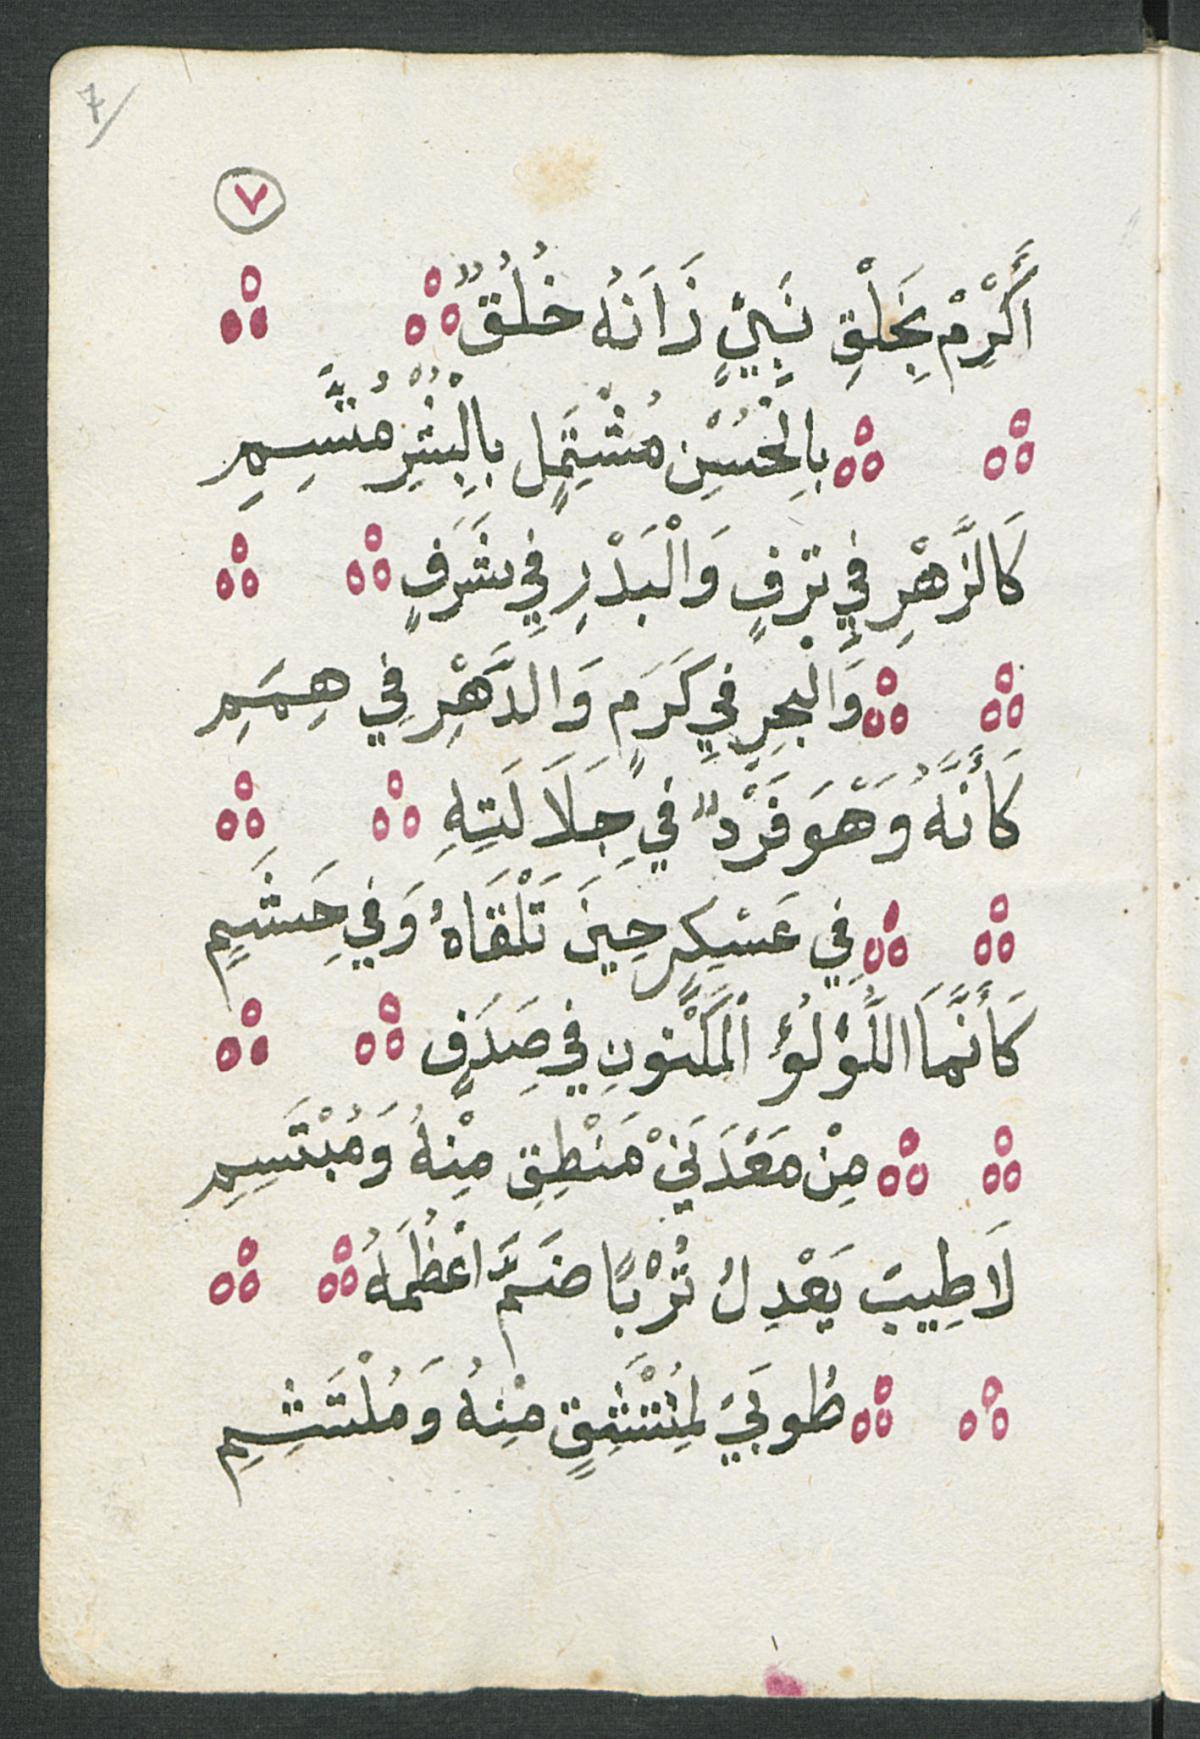 7
٧
أَكْرِمْ بِخَلْقِ نَبِيٍّ زَانَهُ خُلُقٌ
بِالْحُسْنِ مُشْتَمِلٍ بِالْبُشْرِ مُتَّسِمِ
كَالزَّهْرِ فِي تَرَفٍ وَالْبَدْرِ فِي شَرَفٍ
وَالْبَحْرِ فِي كَرَمٍ وَالدَّهْرِ فِي هِمَمِ
كَأَنَّهُ وَهْوَ فَرْدٌ فِي جَلَالَتِهِ
فِي عَسْكَرٍ حِينَ تَلْقَاهُ وَفِي حَشَمِ
كَأَنَّمَا اللُّؤْلُؤُ الْمَكْنُونِ فِي صَدَفٍ
مِنْ مَعْدَنَيْ مَنْطِقٍ مِنْهُ وَمُبْتَسِمِ
لَا طِيبَ يَعْدِلُ تُرْبًا ضَمَّ اَعْظُمَهُ
طُوبَيَ لِمُنْتَشِقٍ مِنْهُ وَمُلْتَثِمِ